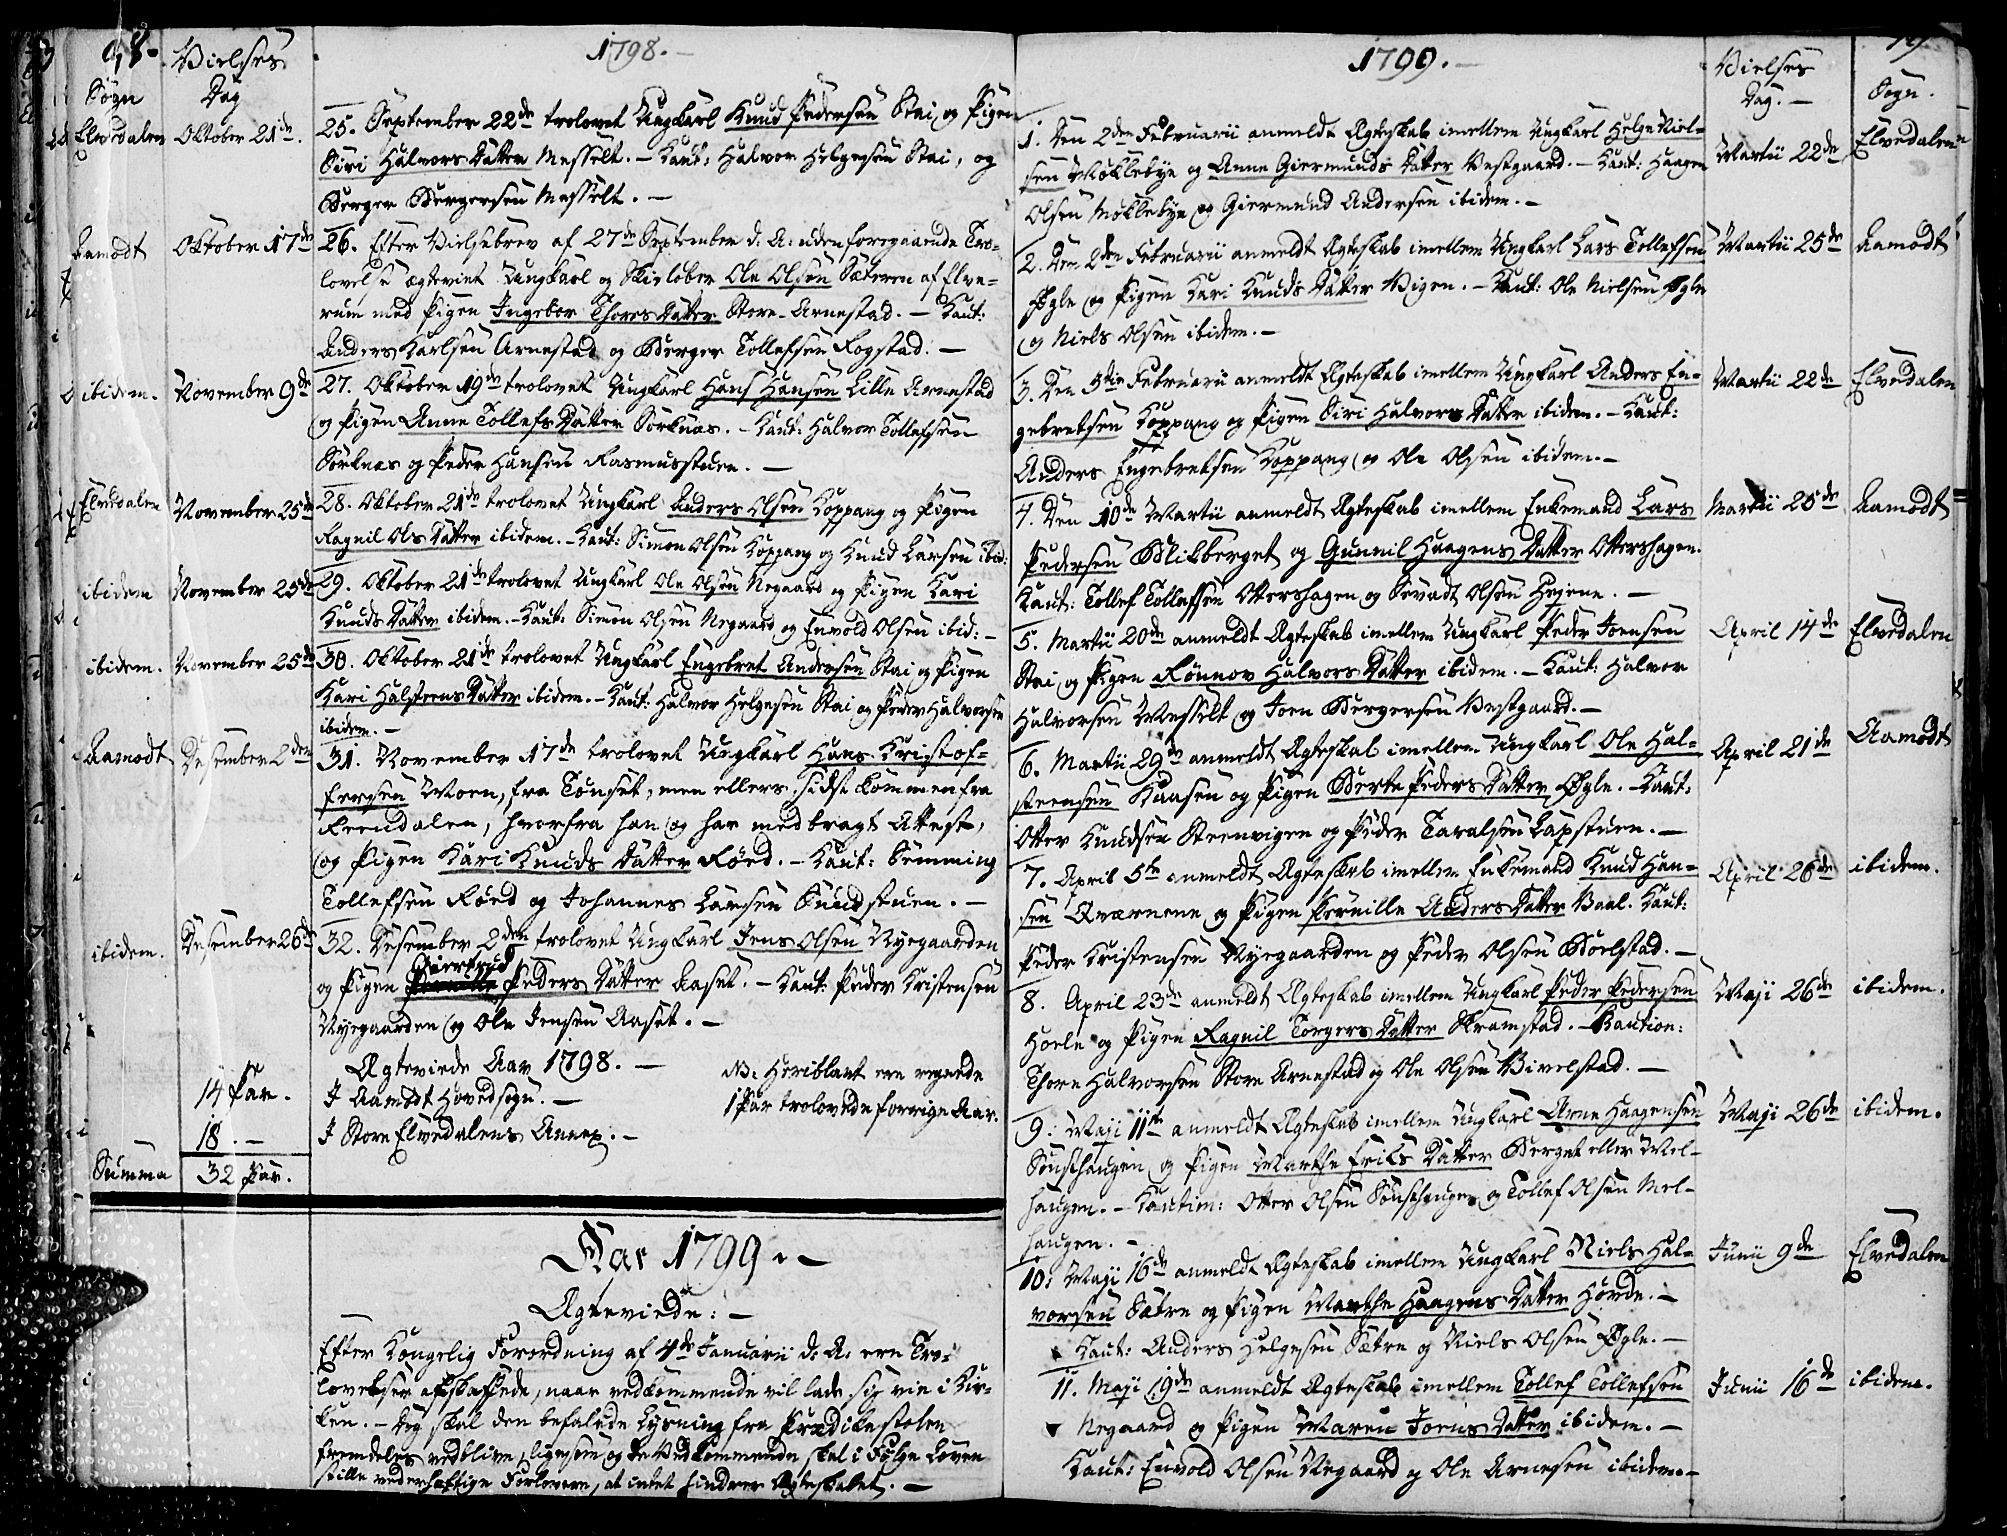 98.
Vielses
Dag
1798.
Sogn
Elvedalen Oktober 21de.
25. September 22de trolovet Ungkarl Knud Pedersen Stai og Pigen
Siri Halvors Datter Messelt. – Kaut: Halvor Helgesen Stai, og
Berger Bergersen Messelt. –
Aamodt Oktober 17de
26. Efter Vielsebrev af 27de September d. A. uden foregaaende Tro-
lovelse egteviet Ungkarl og Skieløber Ole Olsen Sæteren af Elve-
rum med Pigen Ingebor Thores Datter Store-Arnestad. – Kaut:
Anders Karlsen Arnestad og Berger Tollefsen Rogstad. –
ibidem. November 9de
27. Oktober 19de trolovet Ungkarl Hans Hansen Lille Arnestad
og Pigen Anne Tollefs Datter Sorknæs. – Kaut: Halvor Tollefsen
Sorknæs og Peder Hansen Rasmusstuen. –
Elvedalen November 25de
28. Oktober 21de trolovet Ungkarl Anders Olsen Koppang og Pigen
Ragnil Ols Datter ibidem. – Kaut: Simon Olsen Koppang og Knud Larsen ibid:
ibidem November 25de
29. Oktober 21de trolovet Ungkarl Ole Olsen Negaard og Pigen Kari
Knuds Datter ibidem. – Kaut: Simon Olsen Negaard og Envold Olsen ibid: –
ibidem. November 25de
30. Oktober 21de trolovet Ungkarl Engebret Andersen Stai og Pigen
Kari Halsteens Datter ibidem. – Kaut: Halvor Helgesen Stai og Peder Halvorsen
ibidem. –
Aamodt Desember 2den
31. November 17de trolovet Ungkarl Hans Kristof-
fersen Moen, fra Tønset, men ellers sidst kommen fra
Reendalen, hvorfra han og har medbragt Attest,
og Pigen Kari Knuds Datter Røed. – Kaut: Semming
Tollefsen Røed og Johannes Larsen Sundstuen. –
ibidem. Desember 26de
32. Desember 2den trolovet Ungkarl Jens Olsen Nyegaarden
Giertrud
og Pigen Pernille Peders Datter Aaset. – Kaut: Peder Kristensen
Nyegaarden og Ole Jensen Aaset. –
Ægteviede Aar 1798. –
14 Par. I Aamodt Hovedsogn. –
18. – I Store Elvedalens Annex. –
NB: Heriblant ere regnede
1 Par trolovede forrige Aar.
Summa 32 Par.
Aar 1799. –
Ægteviede: –
Efter Kongelig Forordning af 4de Januarii d: A: ere Tro-
lovelser afskaffede, naar vedkommende vil lade sig vie i Kir-
ken. – Dog skal den befalede Lysning fra Prædikestolen
fremdeles vedblive, ligesom og de Vedkommende skal i Følge Loven
stille vederhæftige Forlovere, at intet hindrer Ægteskabet. –
1799. –
Vielses
Dag. –
Sogn.
1. Den 2den Februarii anmeldt Ægteskab imellem Ungkarl Helge Niel-
sen Møklebye og Anne Giermunds Datter Vestgaard. – Kaut: Haagen
Olsen Møklebye og Giermund Andersen ibidem. –
Martii 22de Elvedalen
2. Den 2den Februarii anmeldt Ægteskab imellem Ungkarl Lars Tollefsen
Øgle og Pigen Kari Knuds Datter Vigen. – Kaut: Ole Nielsen Øgle
og Niels Olsen ibidem. –
Martii 25de Aamodt
3. Den Februarii anmeldt Ægteskab imellem Ungkarl Anders En-
gebretsen Koppang og Pigen Siri Halvors Datter ibidem. – Kaut:
Anders Engebretsen Koppang og Ole Olsen ibidem. –
Martii 22de Elvedalen
4. Den 10de Martii anmeldt Ægteskab imellem Enkemand Lars
Pedersen Blikberget og Gunnil Haagens Datter Ottershagen.
Kaut: Tollef Tollefsen Ottershagen og Sivadt Olsen Hejene. –
Martii 25de Aamodt
5. Martii 20de anmeldt Ægteskab imellem Ungkarl Peder Joensen
Stai og Pigen Rønnov Halvors Datter ibidem. – Kaut: Halvor
Halvorsen Messelt og Joen Bergersen Vestgaard. –
April 14de Elvedalen
6. Martii 29de anmeldt Ægteskab imellem Ungkarl Ole Hal-
steensen Kaasen og Pigen Berte Peders Datter Øgle. – Kaut:
Otter Knudsen Steenvigen og Peder Taralsen Løpstuen. –
April 21de Aamodt
7. April 5te anmeldt Ægteskab imellem Enkemand Knud Han-
sen Qværnene og Pigen Pernille Anders Datter Bael. Kaut:
Peder Kristensen Nyegaarden og Peder Olsen Bolstad. –
April 26de ibidem.
8. April 23de anmeldt Ægteskab imellem Ungkarl Peder Pedersen
Hoele og Pigen Ragnil Torgers Datter Skramstad. – Kaution:
Thore Halvorsen Store Arnestad og Ole Olsen Vivelstad. –
Maji 26de ibidem.
9. Maji 11te anmeldt Ægteskab imellem Ungkarl Arne Haagensen
Sønsthaugen og Pigen Marthe Eriks Datter Berget eller Mel-
haugen. – Kaution: Otter Olsen Sønsthaugen og Tollef Olsen Mel-
haugen. –
Maji 26de ibidem.
10. Maji 16de anmeldt Ægteskab imellem Ungkarl Niels Hal-
vorsen Sætre og Pigen Marthe Haagens Datter Horde. –
Kaut: Anders Helgesen Sætre og Niels Olsen Øgle. –
Junii 9de Elvedalen
11. Maji 19de anmeldt Ægteskab imellem Tollef Tollefsen
Negaard og Pigen Maren Joens Datter ibidem. –
Kaut: Envold Olsen Negaard og Ole Arnesen ibidem. –
Junii 16de ibidem.